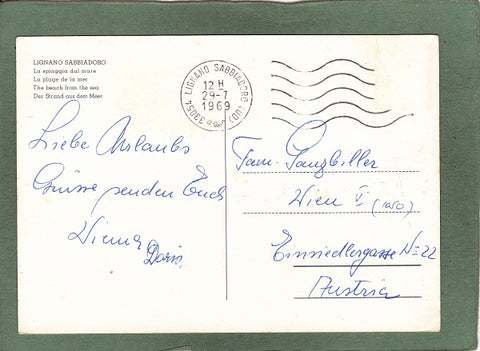 LIGNANO SABBIADORO
La spiaggia dal mare
La plage de la mer
The beach from the sea
Der Strand aus dem Meer
33054 LIGNANO SABBIADORO (UD)
12 H
29-7
1969
Liebe Urlaubs
Grüsse senden Euch
Doris
Fam. Ganzbiller
Wien V. (1050)
Einsiedlergasse N= 22
Austria